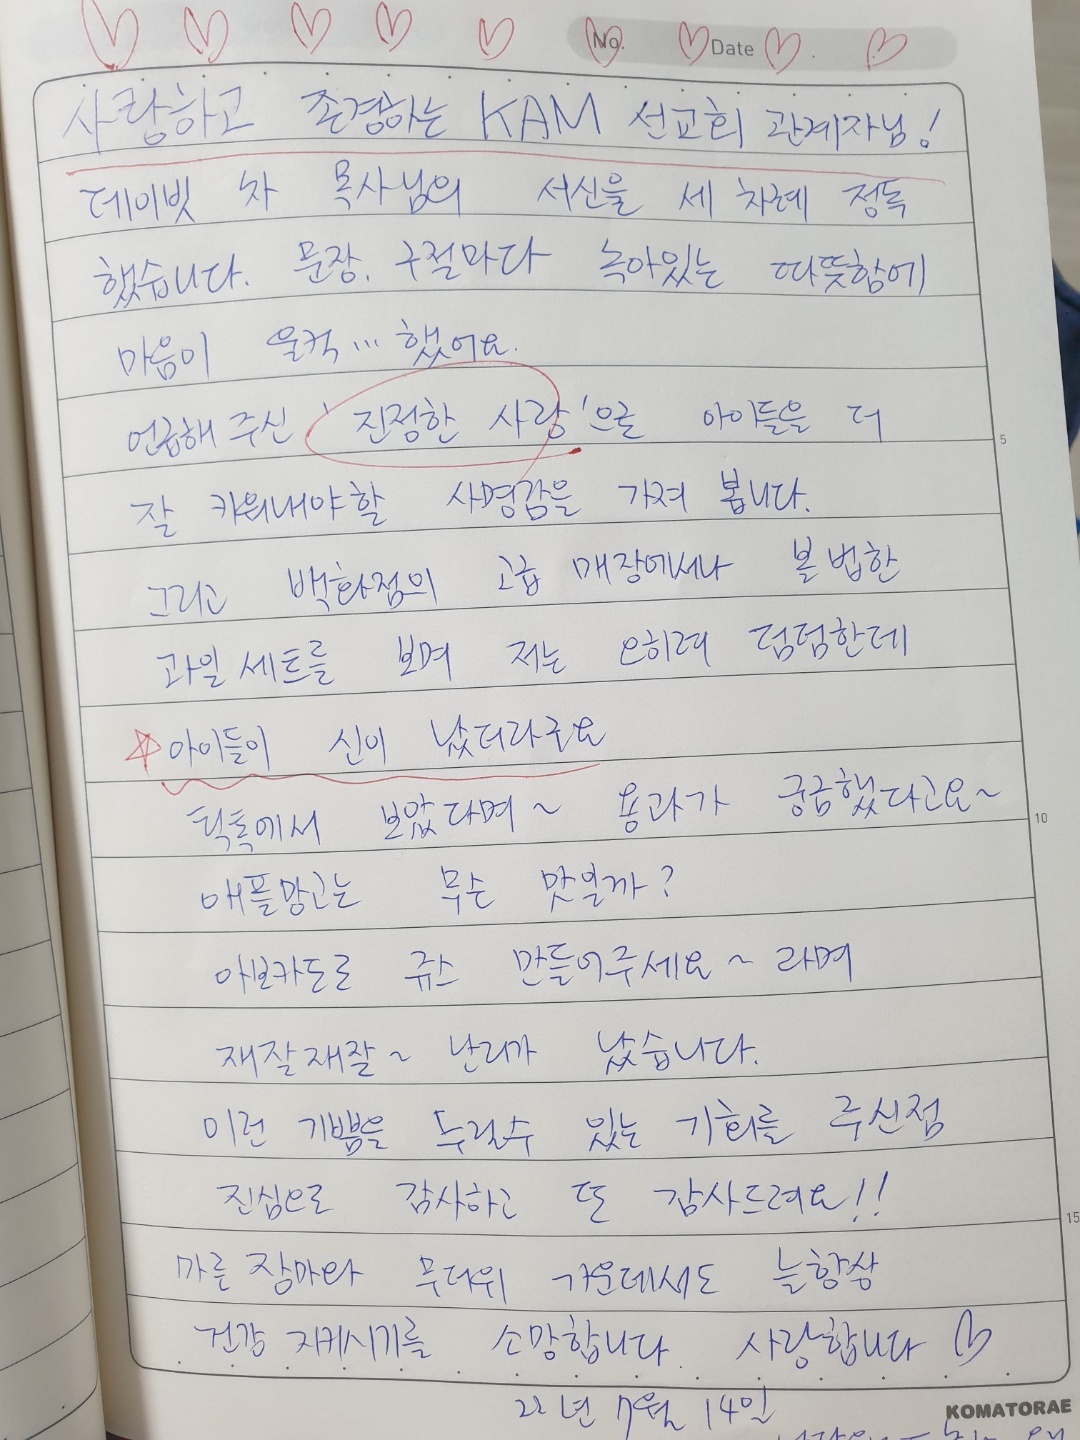 No. Date .
사랑하고 존경하는 KAM 선교회 관계자님!
데이빗 차 목사님의 서신을 세 차례 정독
했습니다. 문장, 구절마다 녹아있는 따뜻함에
마음이 울컥... 했어요.
언급해 주신 '진정한 사랑'으로 아이들을 더
잘 키워내야할 사명감을 가져 봅니다.
그리고 백화점의 고급 매장에서나 볼 법한
과일 세트를 보며 저는 오히려 덤덤한데
아이들이 신이 났더라구요
틱톡에서 보았다며~ 용과가 궁금했다고요~
애플망고는 무슨 맛일까?
아보카도로 쥬스 만들어주세요~ 라며
재잘재잘~ 난리가 났습니다.
이런 기쁨을 누릴수 있는 기회를 주신점
진심으로 감사하고 또 감사드려요!!
마른 장마와 무더위 가운데서도 늘항상
건강 지키시기를 소망합니다. 사랑합니다
22년 7월 14일
KOMATORAE
5
10
15